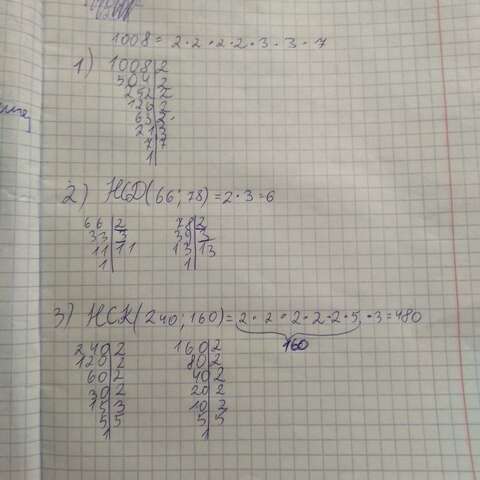 1008 = 2·2·2·2·3·3·7
1) 1008|2
504|2
252|2
126|2
63|3
21|3
7|7
1|
2) НСД(66;78)=2·3=6
66|2 78|2
33|3 39|3
11|11 13|13
1| 1|
3) НСК(240;160)=2·2·2·2·2·5·3=480
160
240|2 160|2
120|2 80|2
60|2 40|2
30|2 20|2
15|3 10|2
5|5 5|5
1| 1|